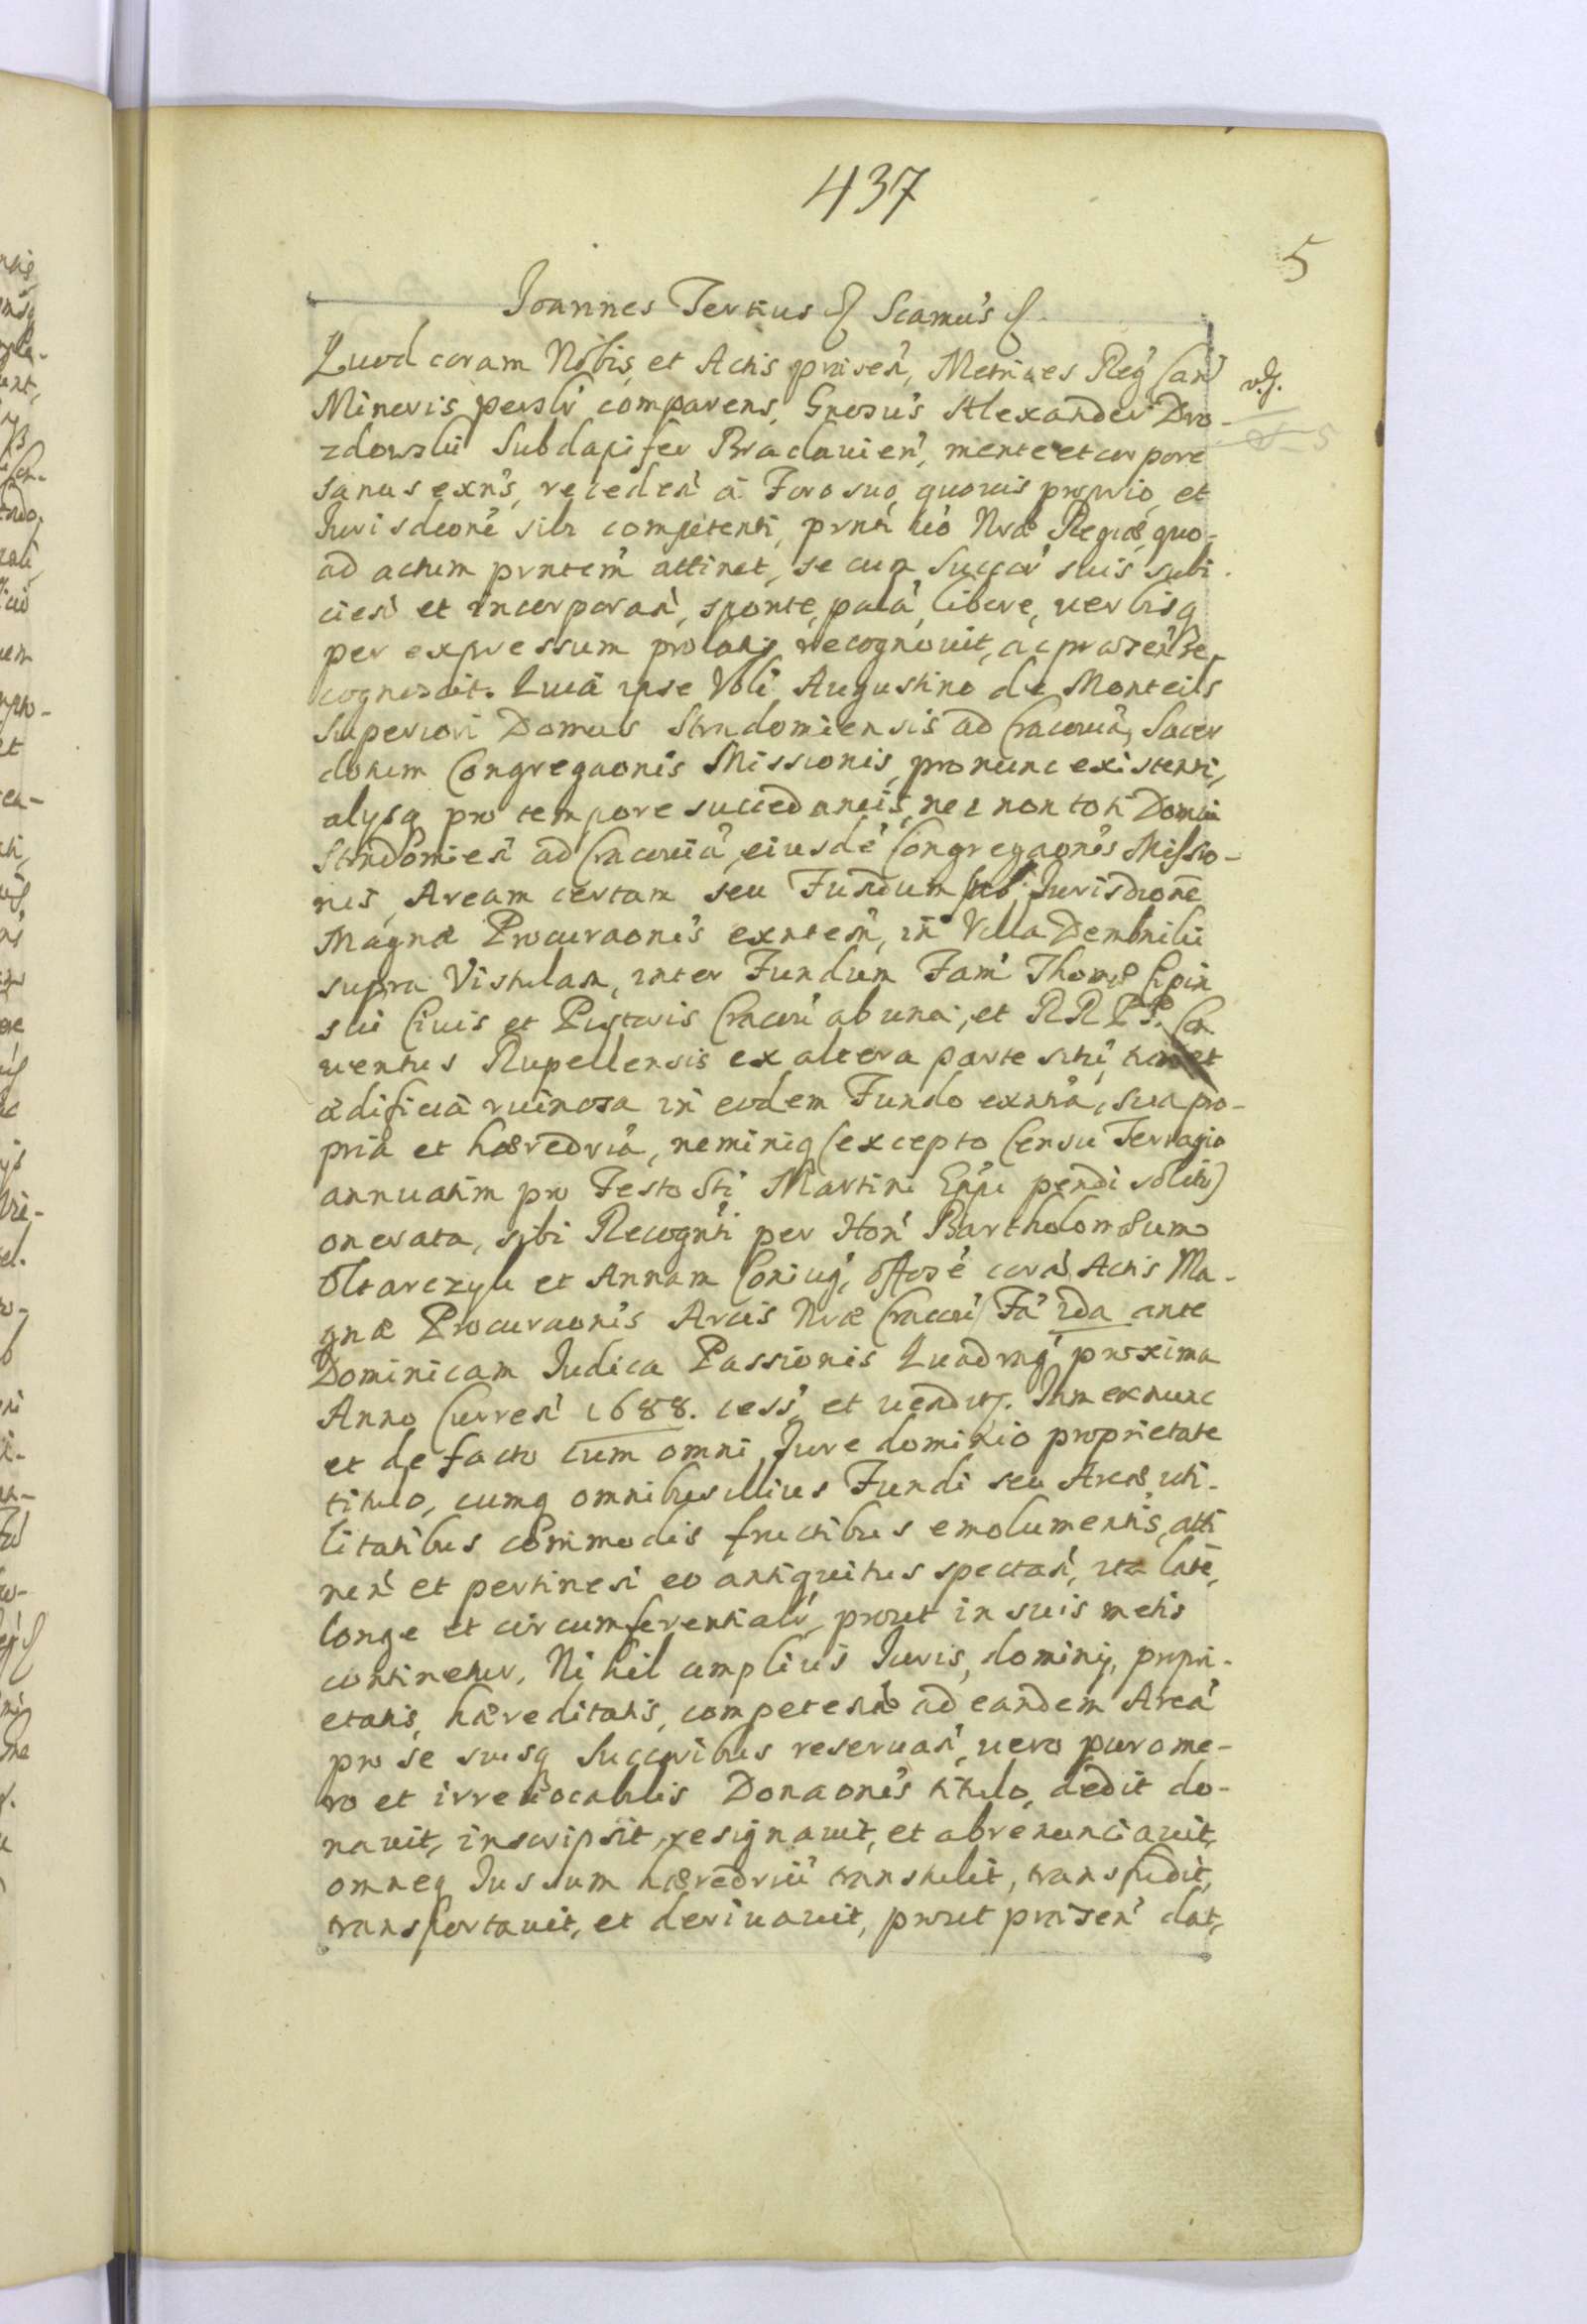 437
5
Joannes Tertius Scamus
Quod coram Nobis et Actis praisen, Metrices Reg Can
Minoris perslr comparens, Gnosus Alexander Dro-
zdowski Subdapifer Braclauien, mente et corpore
sanus exns, receden à Foro suo quouis proprio et
Jurisdeone sibi competenti, prnti uo Nrae Regiae, quo-
ad actum prntem attinet, se cum Succor suis subi-
cien et incorporan, sponte, pala, libere, uerbisq
per expressum prolatis recognouit, ac praesen re-
cognoscit. Quia ipse Vbli Augustino de Monteils
Superiori Domus Stradomiensis ad Cracouia, Sacer
dotum Congregaonis Missionis, pro nunc existenti,
alijsq pro tempore succedaneis, nec non toti Domui
Stradomien ad Cracouia, eiusde Congregaonis Missio-
nis, Aream certam seu Fundum sub Jurisdione
Magnae Procuraonis exntem, in Villa Dembniki
supra Vistulam, inter Fundum Fam Thomae
ski Ciuis et Pistoris Cracou ab una, et RR PP. Con
uentus Rupellensis ex altera parte siti,
aedificia ruinosa in eodem Fundo exntia, sua pro-
pria et haeredria, neminiq (excepto Censu Terragio
annuatim pro Festo Sti Martini Eppi pendi soliti)
onerata, sibi Recognti per Hon Bartholomaeum
Oltarczyk et Annam Coniug, coram Actis Ma-
gnae Procuraonis Arcis Nrae Cracou Fa 2da ante
Dominicam Judica Passionis Quadrag proxima
Anno Curren 1688. cess et uendit. Inm ex nunc
et de facto cum omni Jure dominio proprietate
titulo, cumq omnibus illius Fundi seu Areae uti-
litatibus commodis fructibus emolumentis, atti
nen et pertinen eo antiquitus spectan, ita late,
longe et circumferentialr, prout in suis metis
continetur, Nihil amplius Juris, dominij, propri-
etatis, haereditatis, competen ad eandem Area
pro se suisq Succoribus reseruan, uero puro me-
ro et irreuocabilis Donaonis titulo, dedit do-
nauit, inscripsit, resignauit, et abrenunciauit,
omneq Jus suum haeredriu transtulit, transfudit,
transportauit, et deriuauit, prout praisen dat,